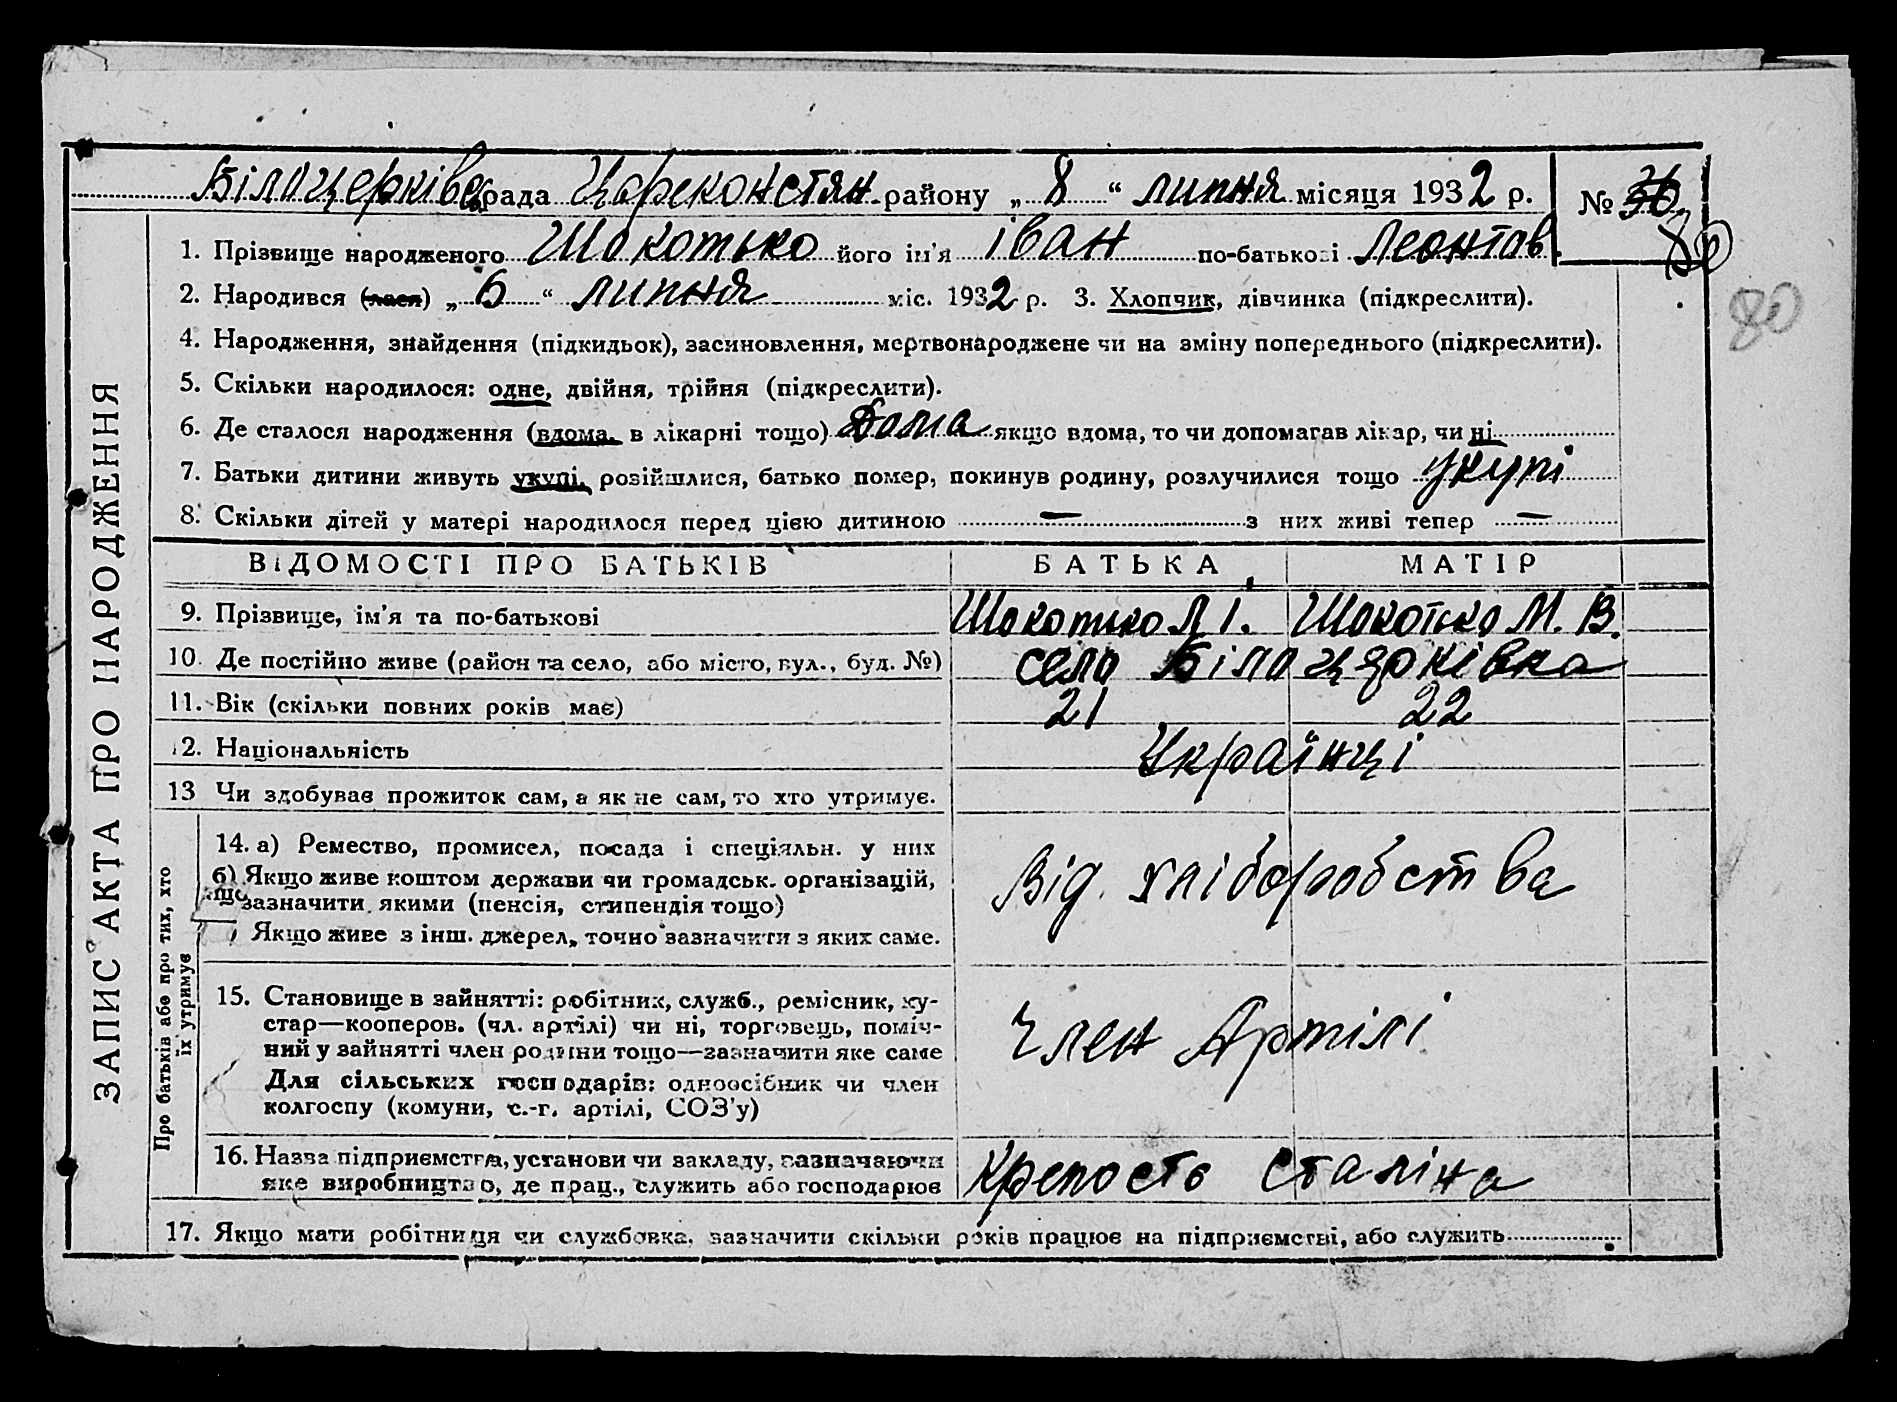 Білоцерківс. рада Цареконстян. району „ 8 “ липня місяця 1932 р. №
30
1. Прізвище народженого Шокотько його ім'я Іван по-батькові Леонтов.
2. Народився (лася) „ 6 “ липня міс. 1932 р. 3. Хлопчик, дівчинка (підкреслити).
80
4. Народження, знайдення (підкидьок), засиновлення, мертвонароджене чи на зміну попереднього (підкреслити).
5. Скільки народилося: одне, двійня, трійня (підкреслити).
6. Де сталося народження (вдома, в лікарні тощо) Дома якщо вдома, то чи допомагав лікар, чи ні
7. Батьки дитини живуть укупі, розійшлися, батько помер, покинув родину, розлучилися тощо укупі
8. Скільки дітей у матері народилося перед цією дитиною — з них живі тепер —
ЗАПИС АКТА ПРО НАРОДЖЕННЯ
ВІДОМОСТІ ПРО БАТЬКІВ БАТЬКА МАТІР
9. Прізвище, ім'я та по-батькові Шокотько Л І. Шокотько М. В.
10. Де постійно живе (район та село, або місто, вул., буд. №) село Білоцерківка
11. Вік (скільки повних років має) 21 22
12. Національність Українці
13 Чи здобував прожиток сам, а як не сам, то хто утримує.
Про батьків або про тих, хто
їх утримує
14. а) Ремество, промисел, посада і спеціяльн. у них
б) Якщо живе коштом держави чи громадськ. організацій,
зазначити якими (пенсія, стипендія тощо)
Якщо живе з інш. джерел, точно зазначити з яких саме.
Від. хліборобства
15. Становище в зайнятті: робітник, служб., ремісник, ку-
стар—кооперов. (чл. артілі) чи ні, торговець, поміч-
ний у зайнятті член родини тощо—зазначити яке саме
Для сільських господарів: одноосібник чи член
колгоспу (комуни, с.-г. артілі, СОЗ'у)
Член Артілі
16. Назва підприємства, установи чи закладу, зазначаючи
яке виробництво, де прац., служить або господарює
Крепость Сталіна
17. Якщо мати робітниця чи службовка, зазначити скільки років працює на підприємстві, або служить